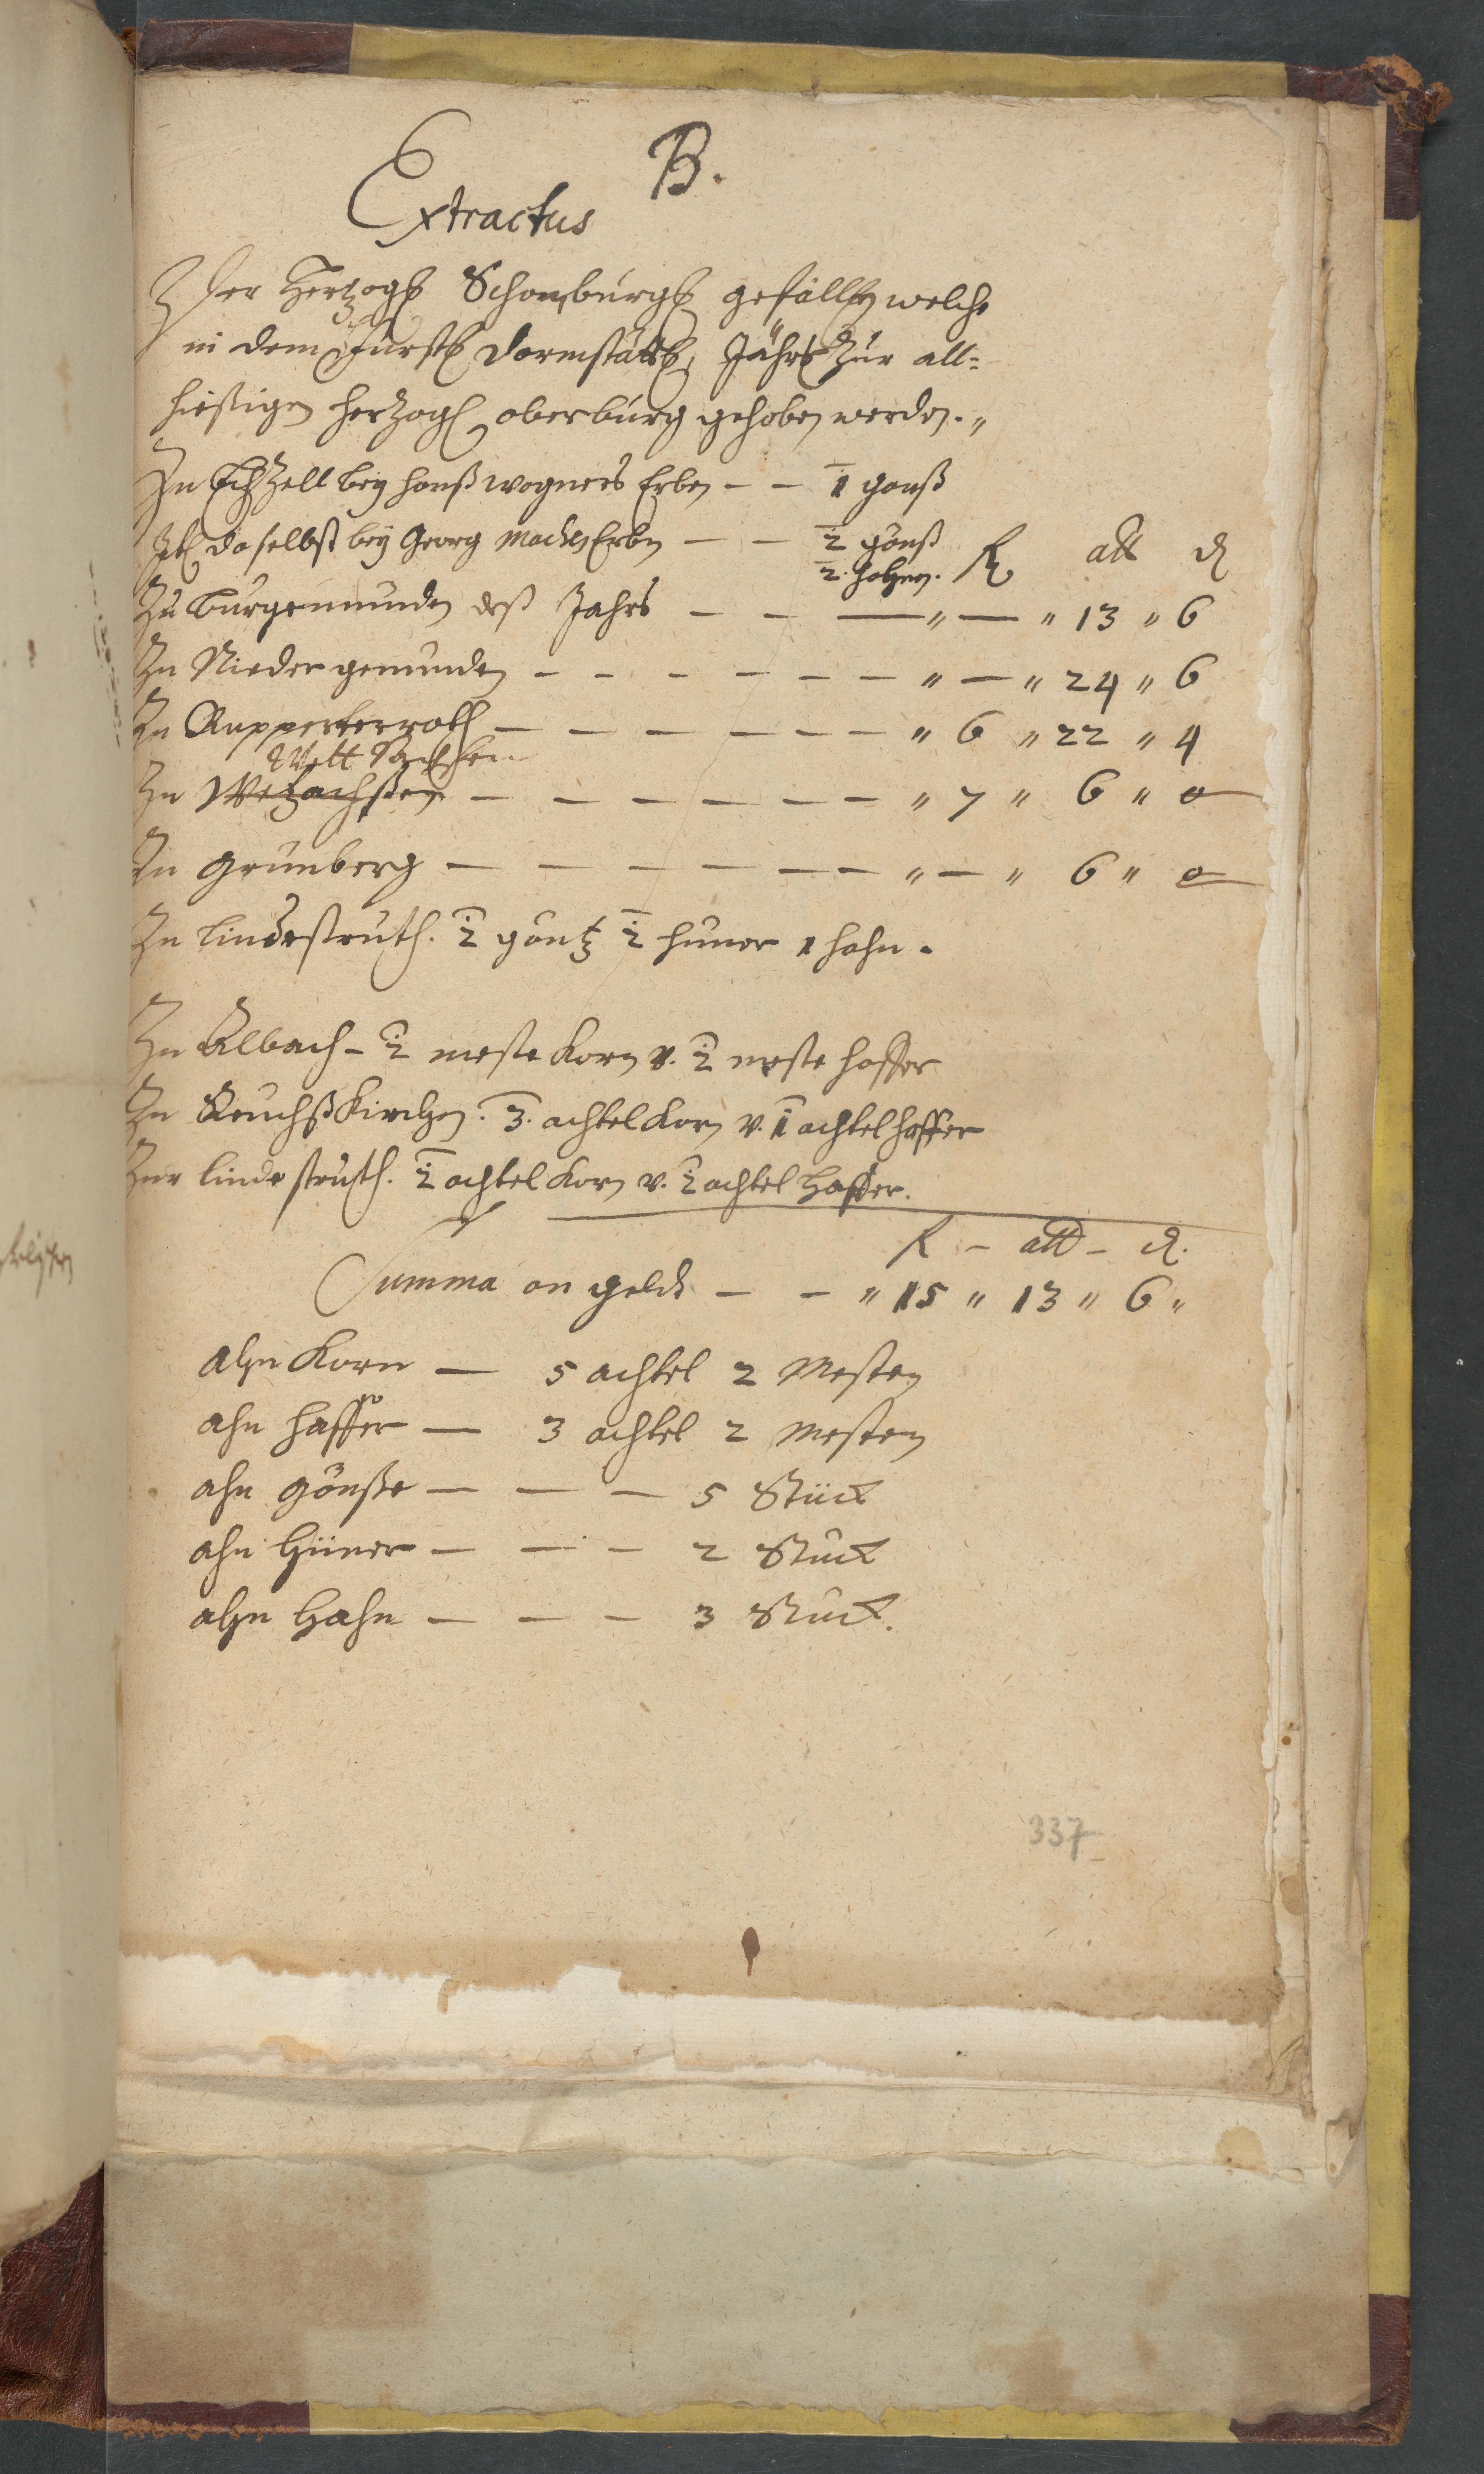 B.
Extractus
Der Hertzogl Schomburgl gefällen welche
in dem fürstl Darmstättl, Jährl zur all=
hiesigen hertzogl oberburg gehoben werden.
Zu Echzell bey hanß wagners Erben — — 1 ganß
Itl daselbst bey Georg Erben — — 2 gänß
2. hahnen. R alb ₰
Zu Burgemunden deß Jahrs — — — " — " 13 " 6
Zu Niedergemunden — — — — — — " — " 24 " 6
Zu Rupperterroth — — — — — — " 6 " 22 " 4
Wett Sachsen
Zu Wetzachßen — — — — — — " 7 " 6 " 0
Zu Grünberg — — — — — — " — " 6 " 0
Zu lindestruth. 2 gäntz 2 hüner 1 hahn.
Zu Albach - 2 meste Korn v. 2 meste haffer
Zu Reuchßkirchen. 3. achtel Korn v. 1 achtel haffer
Zur lindestruth. 2 achtel Korn v. 2 achtel haffer.
R - alb - ₰.
Summa an geldt — — " 15 " 13 " 6 "
ahn Korn — 5 achtel 2 Mesten
ahn haffer — 3 achtel 2 Mesten
ahn gänße — — — 5 Stück
ahn hüner — — — 2 Stück
ahn hahn — — — 3 Stück.
337